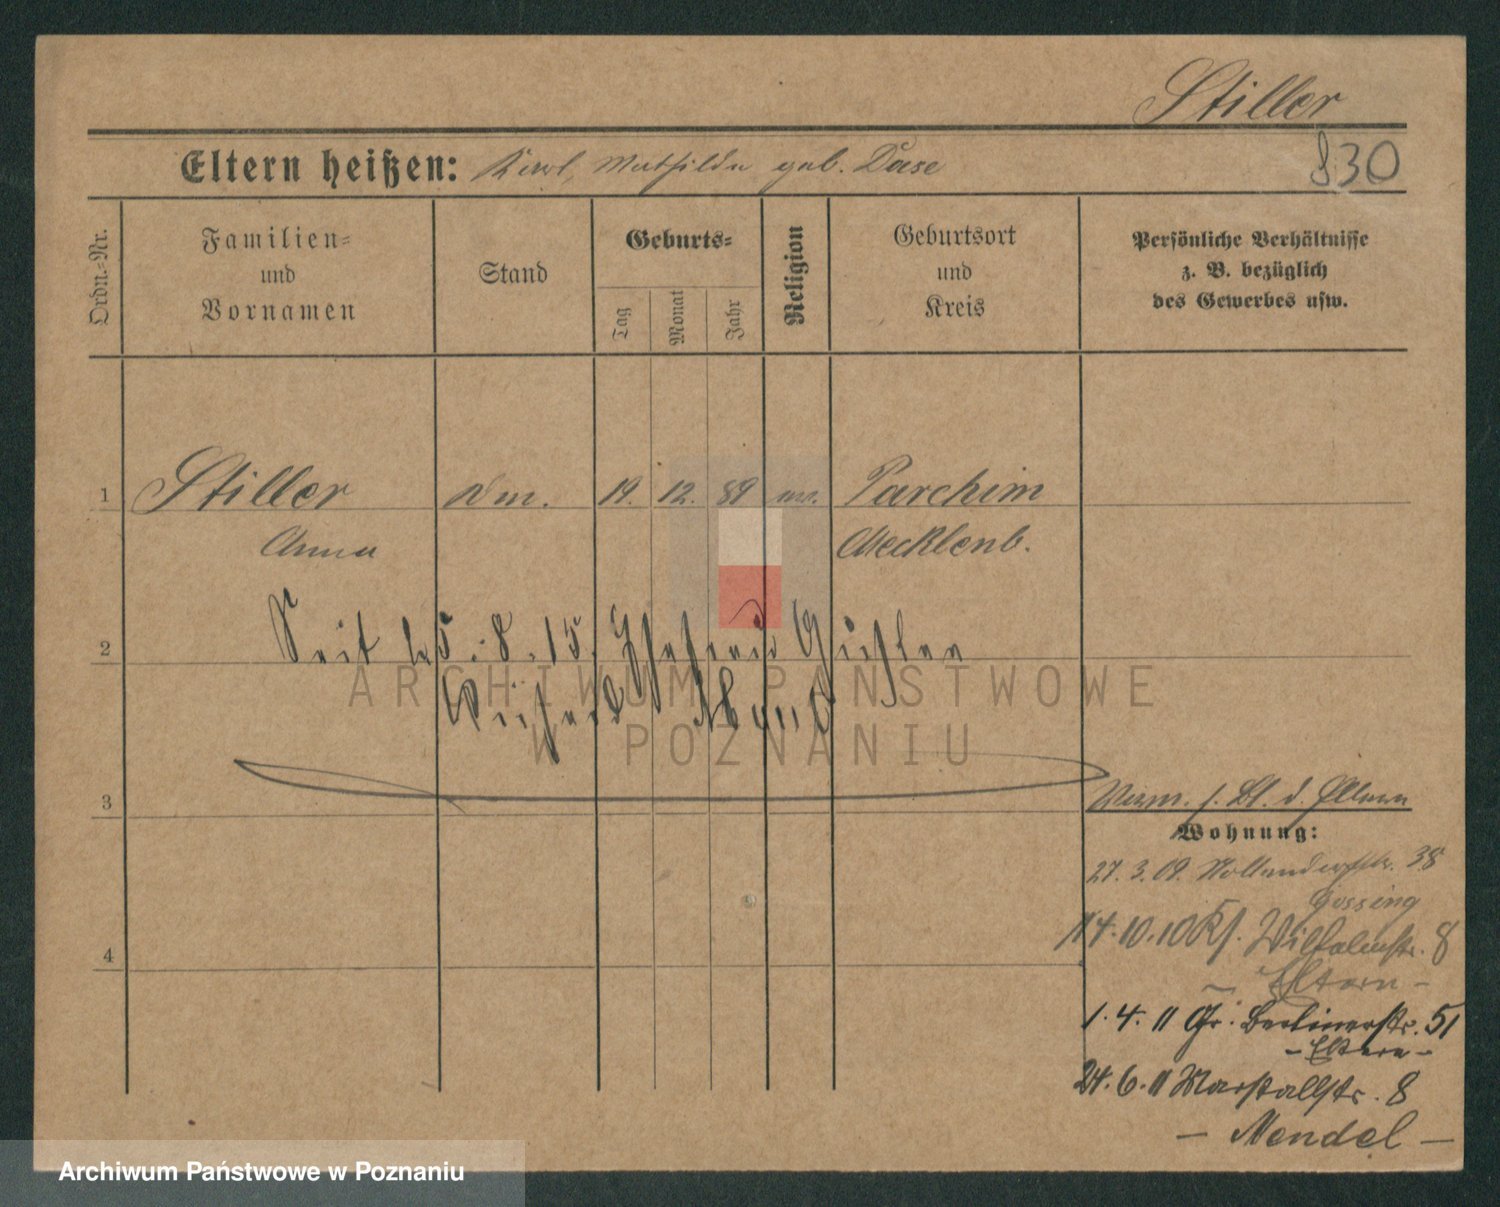 Stiller
Eltern heißen: Karl, Mathilde geb. Dase
830
Ordn.-Nr.
Familien-
und
Vornamen
Stand
Geburts-
Tag
Monat
Jahr
Religion
Geburtsort
und
Kreis
Persönliche Verhältnisse
z. B. bezüglich
des Gewerbes usw.
1 Stiller 19. 12. 89 Parchim
Anna Mecklenb.
2 Seit 5.8.15
ARCHIWUM PAŃSTWOWE
W POZNANIU
3
Verm. s. Bl. d. Eltern
Wohnung:
27.3.09. 38
Gossing
4
14.10.10 Wilhelmstr. 8
- Eltern -
1.4.11 Gr. Berlinerstr. 51
- Eltern -
24.6.11 Marstallstr. 8
- Mendel -
Archiwum Państwowe w Poznaniu